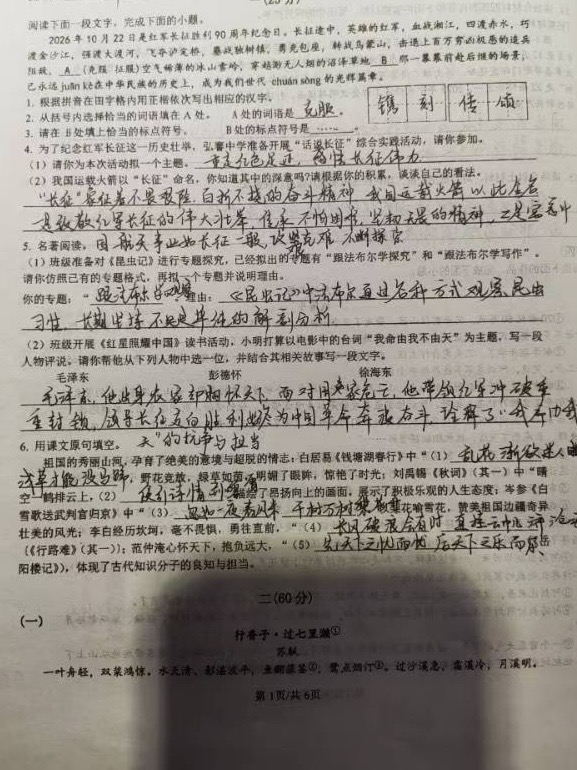 阅读下面一段文字，完成下面的小题。
2026年10月22日是红军长征胜利90周年纪念日。长征途中，英雄的红军，血战湘江，四渡赤水，巧
渡金沙江，强渡大渡河，飞夺泸定桥，鏖战独树镇，勇克包座，转战乌蒙山，击退上百万穷凶极恶的追兵
阻敌，A（克服 征服）空气稀薄的冰山雪岭，穿越渺无人烟的沼泽草地 B 那一幕幕前赴后继的场景，
已永远juān kè在中华民族的历史上，成为我们世代chuán sòng的光辉篇章。
1. 根据拼音在田字格内用正楷依次写出相应的汉字。
镌 刻 传 颂
2. 从括号内选择恰当的词语填在A处。 A处的词语是 克服。
3. 请在B处填上恰当的标点符号。 B处的标点符号是 ……。
4. 为了纪念红军长征这一历史壮举，弘謇中学准备开展“话说长征”综合实践活动，请你参加。
（1）请你为本次活动拟一个主题。 重走红色足迹，感悟长征伟力
（2）我国运载火箭以“长征”命名，你知道其中的深意吗?请根据你的积累，谈谈自己的看法。
“长征”象征着不畏艰险、百折不挠的奋斗精神 我国运载火箭以此命名
是致敬红军长征的伟大壮举，传承不怕困难、坚韧
5. 名著阅读。 国航天事业如长征一般，攻坚克难 不断探索
（1）班级准备对《昆虫记》进行专题探究，已经拟出的专题有“跟法布尔学探究”和“跟法布尔学写作”。
请你仿照已有的专题格式，再拟一个专题并说明理由。
你的专题：“跟法布尔学观察 理由：《昆虫记》中法布尔通过各种方式观察昆虫
习性，长期坚持
（2）班级开展《红星照耀中国》读书活动，小明打算以电影中的台词“我命由我不由天”为主题，写一段
人物评说。请你帮他从下列人物中选一位，并结合其相关故事写一段文字。
毛泽东 彭德怀 徐海东
毛泽东，他出身农家却胸怀天下，面对国家危亡，他带领红军冲破重
重封锁，领导长征走向胜利，始终为中国革命奔波奋斗，诠释了“我命由我
6. 用课文原句填空。 天”的抗争与担当
祖国的秀丽山河，孕育了绝美的意境与超脱的情志：白居易《钱塘湖春行》中“（1）乱花渐欲迷人眼
浅草才能没马蹄，野花竞放，绿草如茵，明媚了眼眸，惊艳了时光；刘禹锡《秋词》（其一）中“晴
空一鹤排云上，（2）便引诗情到碧霄 描绘了昂扬向上的画面，展示了积极乐观的人生态度；岑参《白
雪歌送武判官归京》中“（3）忽如一夜春风来 千树万树梨花开 花喻雪花，赞美祖国边疆奇异
壮美的风光；李白经历坎坷，毫不畏惧，勇往直前，“（4）长风破浪会有时 直挂云帆济沧海
（《行路难》（其一））；范仲淹心怀天下，抱负远大，“（5）先天下之忧而忧 后天下之乐而乐 岳
阳楼记》），体现了古代知识分子的良知与担当。
二(60分)
（一）
行香子·过七里濑①
苏轼
一叶舟轻，双桨鸿惊。水天清、影湛波平。鱼翻藻鉴②，鹭点烟汀③。过沙溪急，霜溪冷，月溪明。
第1页/共6页